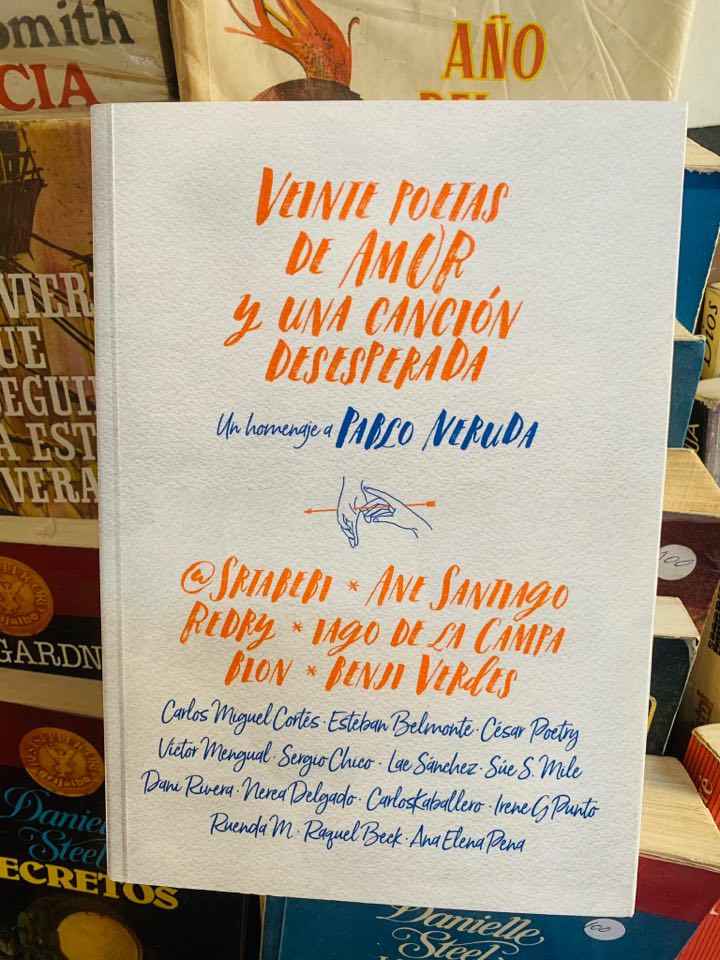 Smith
CIA
AÑO
DEL
VEINTE POETAS
DE AMOR
Y UNA CANCIÓN
DESESPERADA
Un homenaje a PABLO NERUDA
@SRTABEBI * ANE SANTIAGO
REDRY * IAGO DE LA CAMPA
BLON * BENJI VERDES
Carlos Miguel Cortés · Esteban Belmonte · César Poetry
Víctor Mengual · Sergio Chico · Lae Sánchez · Súe S. Mile
Dani Rivera · Nerea Delgado · CarlosKaballero · Irene G Punto
Ruenda M. · Raquel Beck · Ana Elena Pena
UE
A EST
VERA
GARDN
Danielle
Steel
SECRETOS
Danielle
Steel
100
100